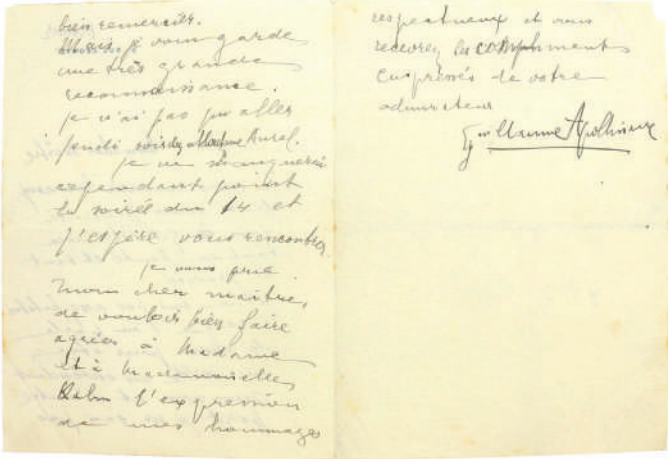 bien remercier.
Aussi je vous garde
une très grande
reconnaissance.
je n'ai pas pu aller
jeudi soir chez Madame Aurel.
je ne manquerai
cependant point
la soirée du 14 et
j'espère vous rencontrer.
je vous prie
mon cher maître,
de vouloir bien faire
agréer à Madame
et à Mademoiselle
Kahn l'expression
de mes hommages
respectueux et vous
recevrez les compliments
empressés de votre
admirateur
Guillaume Apollinaire